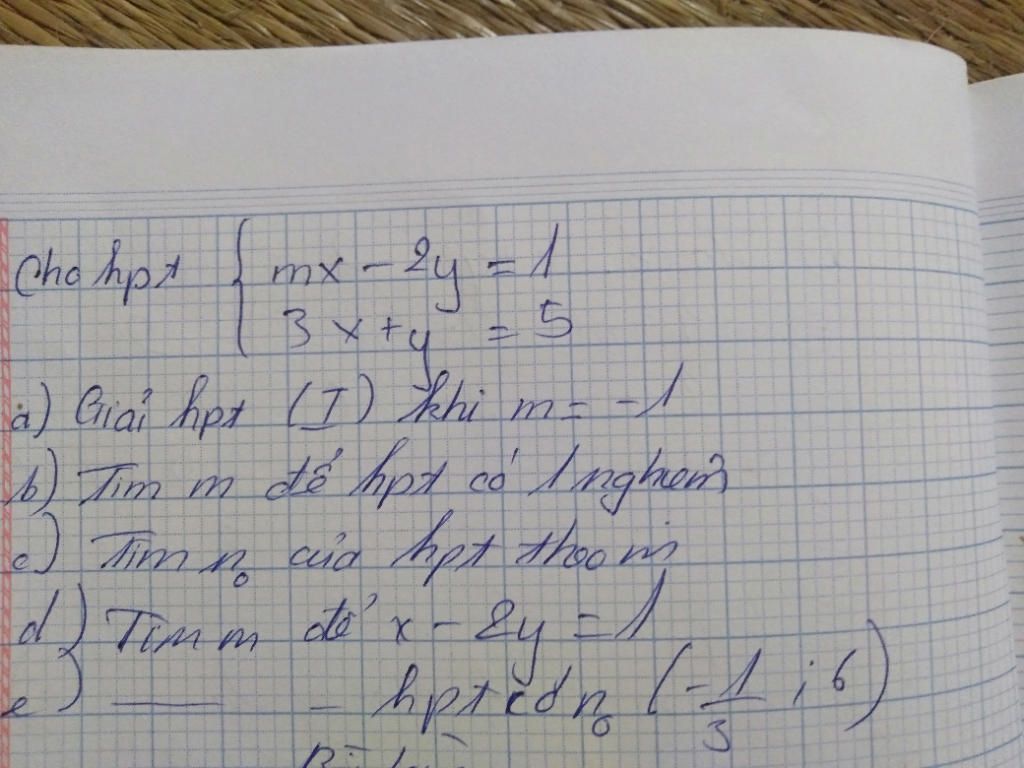 Cho hpt { mx - 2y = 1
3x + y = 5
a) Giải hpt (I) khi m = -1
b) Tìm m để hpt có 1 nghiệm
c) Tìm n₀ của hpt theo m
d) Tìm m để x - 2y = 1
e) —— – hpt có n₀ (-1/3 ; 6)